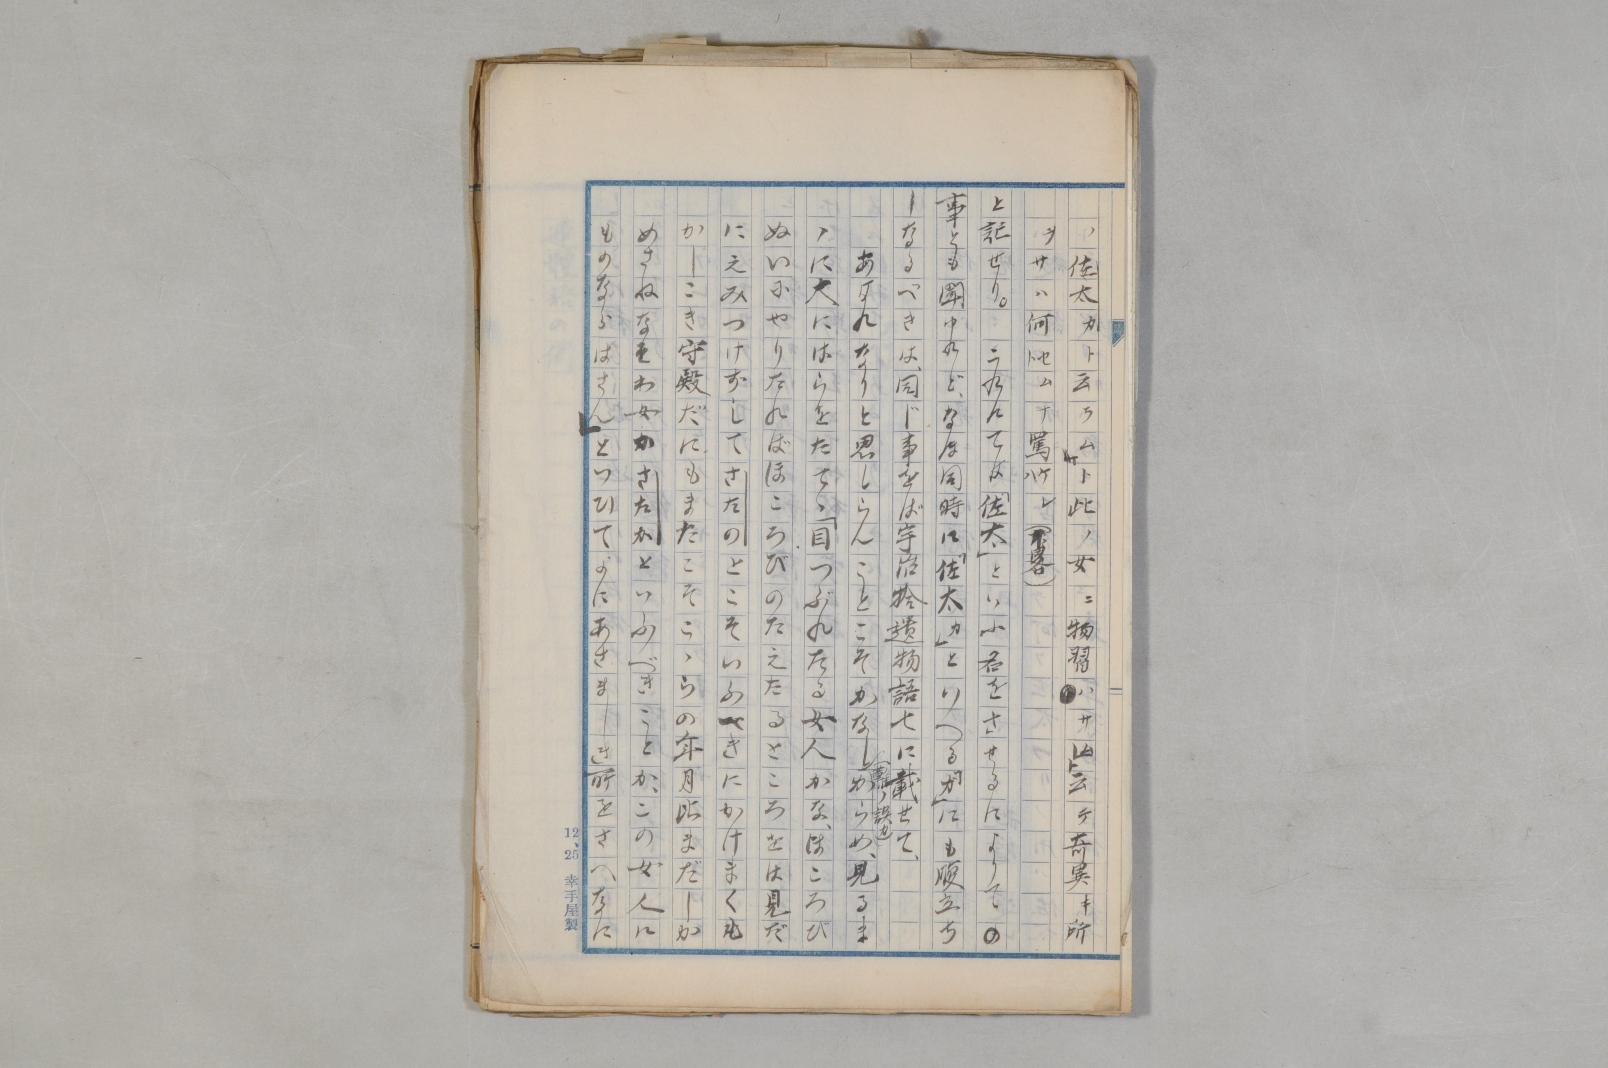 ノ佐太カト云ラムト此ノ女ニ物習ハサム云ケ奇異キ所
ヲサハ何ニセムナ罵ケレ(下略)
と記せり。これにては「佐太」といふ名をさせるによりての
事とも聞ゆれど、なほ同時に「佐太カ」といへる「カ」にも腹立ち
しなるべきは、同じ事をば宇治拾遺物語七に載せて、
あはれなりと思しらんことこそかなしからめ、見るま
ゝに大にはらをたてゝ「目つぶれたる女人かな、ほころび
ぬいにやりたればほころびのたえたるところをは見だ
にえみつけずしてさたのとこそいふべきにかけまくも
かしこき守殿だにもまたこそこゝらの年月比まだしか
めさねなぞわ女かさたかといふべきことか、この女人に
ものならはさん」といひてよにあさましき所をさへなに
(事ノ誤カ)
12、25 幸手屋製